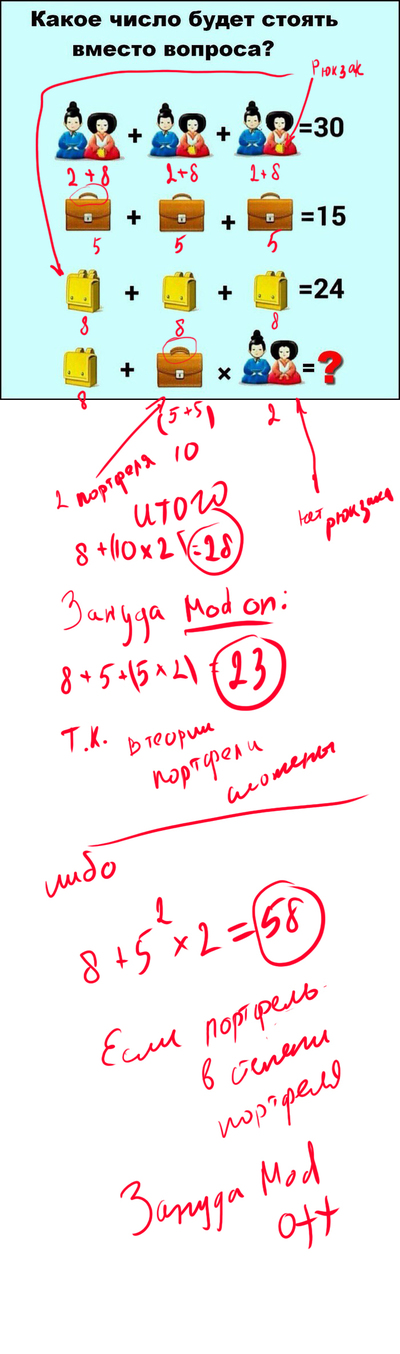 Какое число будет стоять
вместо вопроса?
Рюкзак
+ + =30
2+8 2+8 2+8
+ + =15
5 5 5
+ + =24
8 8 8
+ × =?
8 (5+5) 2
2 портфеля 10
нет рюкзака
итого
8+(10×2)=28
Зануда Mod on:
8+5+(5×2)=23
Т.К. в теории
портфели
сложены
либо
8+5²×2=58
Если портфель
в степени
портфеля
Зануда Mod
off